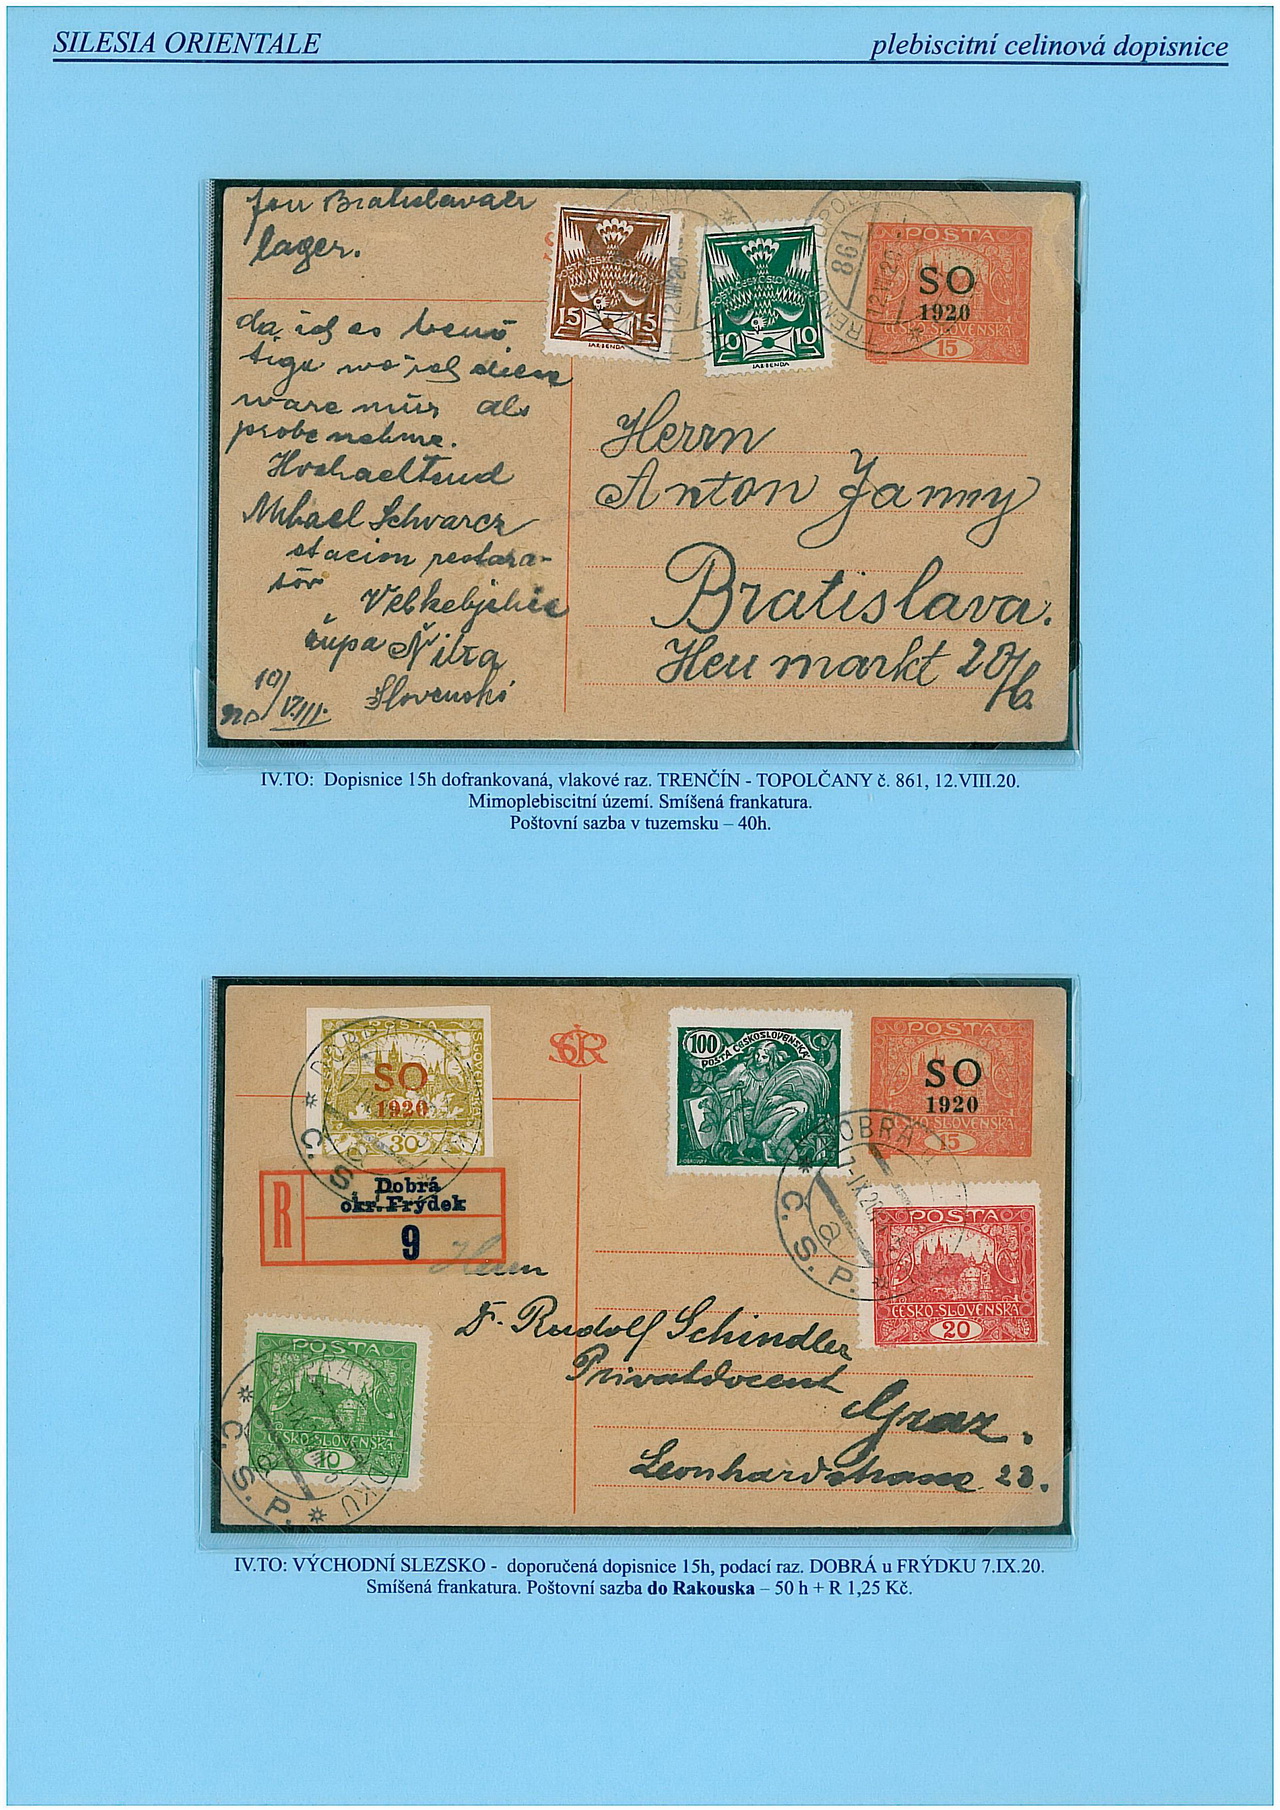 SILESIA ORIENTALE
plebiscitní celinová dopisnice
Bratislavaer
lager.
POSTA ČESKOSLOVENSKÁ
15 15
JAR.BENDA
POSTA ČESKOSLOVENSKÁ
10 10
JAR.BENDA
861
12.VIII.20
POSTA
SO
1920
ČESKO-SLOVENSKÁ
15
da ich es benö
tige wo ich diese
ware nur als
probe nehme.
Hochachtend
Mihael Schvarcz
stacion restora-
tör
župa Nitra
Slovensko
10/VIII.
920
Herrn
Anton Janny
Bratislava.
Heumarkt 20/6.
IV.TO: Dopisnice 15h dofrankovaná, vlakové raz. TRENČÍN - TOPOLČANY č. 861, 12.VIII.20.
Mimoplebiscitní území. Smíšená frankatura.
Poštovní sazba v tuzemsku – 40h.
POSTA
SO
1920
30
C. S. P.
100
POSTA ČESKOSLOVENSKÁ
POSTA
SO
1920
ČESKO-SLOVENSKÁ
15
DOBRÁ
7-IX 20
a
C. S. P.
R
Dobrá
okr. Frýdek
9
POSTA
ČESKO-SLOVENSKÁ
20
Herrn
Dr. Rudolf Schindler
Privatdocent
Graz.
Leonhardstrasse 23.
POSTA
ČESKO-SLOVENSKÁ
10
C. S. P.
IV.TO: VÝCHODNÍ SLEZSKO - doporučená dopisnice 15h, podací raz. DOBRÁ u FRÝDKU 7.IX.20.
Smíšená frankatura. Poštovní sazba do Rakouska – 50 h + R 1,25 Kč.